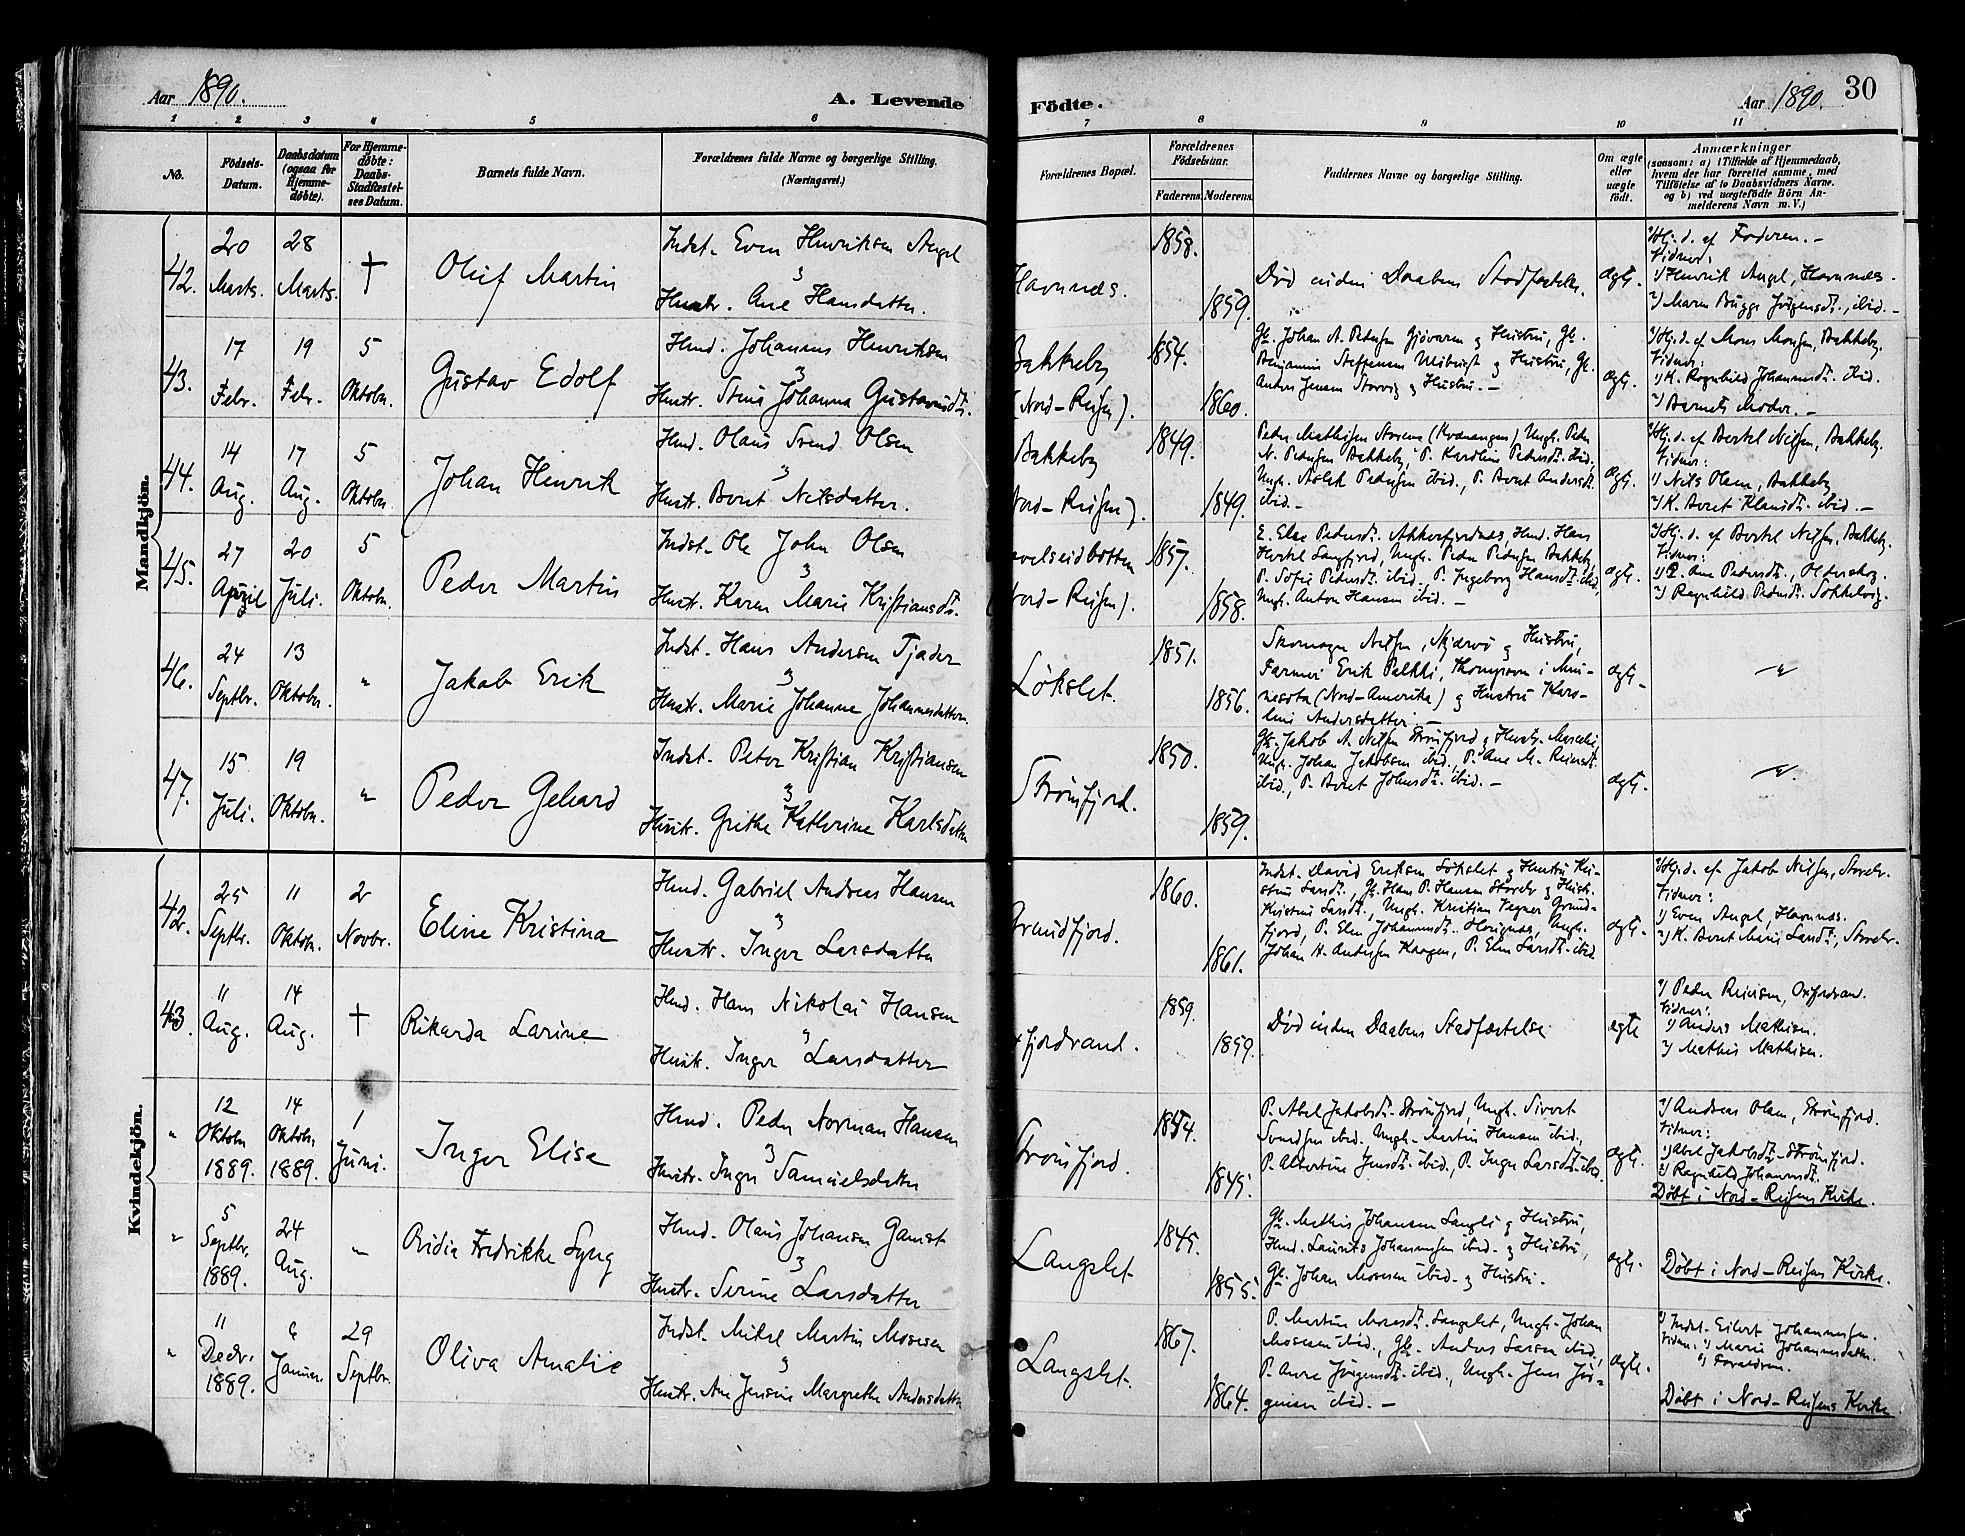 Aar 1890.
A. Levende
Födte.
Aar 1890. 30
1 2 3 4 5 6 7 8 9 10 11
No.
Födsels-
Datum.
Daabsdatum
(ogsaa for
Hjemme-
döbte).
For Hjemme-
döbte:
Daabs-
Stadfæstel-
ses Datum.
Barnets fulde Navn.
Forældrenes fulde Navne og borgerlige Stilling.
(Næringsvei.)
Forældrenes Bopæl.
Forældrenes
Födselsaar.
Faderens. Moderens.
Faddernes Navne og borgerlige Stilling.
Om ægte
eller
uægte
födt.
Anmærkninger
(saasom: a) i Tilfælde af Hjemmedaab,
hvem der har forrettet samme, med
Tilföielse af to Daabsvidners Navne.
og b) ved uægtefödte Börn An-
melderens Navn m. V.)
Mandkjön.
42.
20
Marts.
28
Marts.
†
Oluf Martin
Indst. Even Henriksen Angel
&
Hustr. Ane Hansdatter.
Havnnes.
1858.
1859.
Død inden Daabens Stadfæstelse.
ægte.
Hj.d. af Faderen. –
Vidner:
1) Henrik Angel, Havnnes.
2) Maren Bugge Jørgensdt., ibid. –
43.
17
Febr.
19
Febr.
5
Oktobr.
Gustav Edolf
Hmd. Johannes Henriksen
&
Hustr. Stina Johanna Gustavusdt.
Bakkeby
(Nord-Reisen).
1854.
1860.
Gb. Johan A. Pedersen Gjøvaren & Hustru, Gb.
Benjamin Steffensen & Hustru, Gb.
Anders Jensen Storvig & Hustru. –
ægte.
Hj.d. af Mons Monsen, Bakkeby.
Vidner:
1) K. Ragnhild Johannesdt. ibid.
2) Barnets Moder. –
44.
14
Aug.
17
Aug.
5
Oktobr.
Johan Henrik
Hmd. Olaus Svend Olsen
&
Hustr. Beret Nilsdatter.
Bakkeby
Nord-Reisen).
1849.
1849.
Peder Mathisen Storenes (Kvænangen) Ungk. Peder
N. Pedersen Bakkeby, P. Karoline Pedersdt. ibid.,
Ungk. Aslek Pedersen ibid., P. Beret Andersdt.
ibid. –
ægte.
Hj.d. af Bertel Nilsen, Bakkeby.
Vidner:
1) Nils Olsen, Bakkeby
2) K. Beret Klausdt. ibid. –
45.
27
April
20
Juli.
5
Oktobr.
Peder Martin
Indst. Ole John Olsen
&
Hustr. Karen Marie Kristiansdt.
ovelseidbotten
Nord-Reisen).
1857.
1858.
E. Else Pedersdt. Akkarfjordnes, Hmd. Hans
Hertel Langfjord, Ungk. Peder Pedersen Bakkeby,
P. Sofie Pedersdt. ibid. P. Ingeborg Hansdt. ibid,
Ungk. Anton Hansen ibid. –
ægte.
Hj.d. af Bertel Nilsen, Bakkeby.
Vidner:
1) P. Ane Pedersdt., Olderskog.
2) Ragnhild Pedersdt. Sokkelvig.
46.
24
Septbr.
13
Oktobr.
"
Jakob Erik
Indst. Hans Andersen Tjader
&
Hustr. Marie Johanne Johannesdatter.
Løkslet.
1851.
1856.
Skomager Nilsen, Skjærvø & Hustru,
Farmer Erik Palkki, Thompson i Min-
nesota (Nord-Amerika) & Hustru Karo-
line Andersdatter. –
ægte.
"
47.
15
Juli.
19
Oktobr.
"
Peder Gehard
Indst. Peter Kristian Kristiansen
&
Hustr. Grethe Katherine Karlsdatter
Strømfjord.
1850.
1859.
Gb. Jakob A. Nilsen Strømfjord & Hustr. Marselie,
Ungk. Johan Jakobsen ibid., P. Ane M. Reiersdt.
ibid., P. Beret Johnsdt. ibid. –
ægte.
"
Kvindekjön.
42.
25
Septbr.
11
Oktobr.
2
Novbr.
Eline Kristina
Hmd. Gabriel Andreas Hansen
&
Hustr. Inger Larsdatter
Grundfjord.
1860.
1861.
Indst. David Eriksen Løkslet & Hustru Kri-
stine Larsdt., Gb. Hans P. Hansen Storelv & Hustr.
Kristine Larsdt., Ungk. Kristian Vegner Grund-
fjord, P. Elen Johannesdt. Havignes, Ungk.
Johan H. Andersen Kaagen, P. Elen Larsdt. ibid
ægte.
Hj.d. af Jakob Nilsen, Storelv.
Vidner:
1) Even Angel, Havnnes.
2) K. Beret Marie Larsdt., Storelv.
43.
11
Aug.
14
Aug.
†
Rikarda Larine
Hmd. Hans Nikolai Hansen
&
Hustr. Inger Larsdatter
xfjordvand.
1859.
1859.
Død inden Daabens Stadfæstelse
ægte
1) Peder Reiersen, Oxfjordvan.
Vidner:
1) Anders Mathisen.
2) Mathis Mathisen.
"
12
Oktobr
1889.
14
Oktobr.
1889.
1
Juni.
Inger Elise
Hmd. Peder Norman Hansen
&
Hustr. Inger Samuelsdatter
Strømfjord.
1854.
1845.
P. Abel Jakobsdt. Strømfjord, Ungk. Sivert
Svendsen ibid. Ungk. Martin Hansen ibid.,
P. Albertine Jensdt. ibid., P. Inger Larsdt. ibid.
ægte.
1) Andreas Olsen, Strømfjord.
Vidner:
1) Abel Jakobsdt. Strømfjord.
2) Ragnhild Johannesdt.
Døbt i Nord-Reisens Kirke.
"
5
Septbr.
1889.
24
Aug.
"
Ovidia Fredrikke Lyng
Hmd. Olaus Johansen Gamst
&
Hustr. Serine Larsdatter
Langslet
1845.
1855.
Gb. Mathis Johansen Langsl. & Hustru,
Hmd. Laurits Johannesen ibid. & Hustru,
Gb. Johan Mosesen ibid. & Hustru.
ægte.
Døbt i Nord-Reisens Kirke.
"
11
Decbr.
1889.
6
Januar.
29
Septbr.
Oliva Amalie
Indst. Mikel Martin Mosesen
&
Hustr. Ane Jensine Margrethe Andersdatter
Langslet.
1867.
1864.
P. Martine Mosesdt. Langslet, Ungk. Johan
Mosesen ibid., Gb. Anders Larsen ibid.,
P. Anne Jørgensdt. ibid., Ungk. Jens Jør-
gensen ibid. –
ægte.
1) Indst. Eilert Johannesen.
Vidner: 1) Marie Johannesdatter.
2) Forældrene.
Døbt i Nord-Reisens Kirke